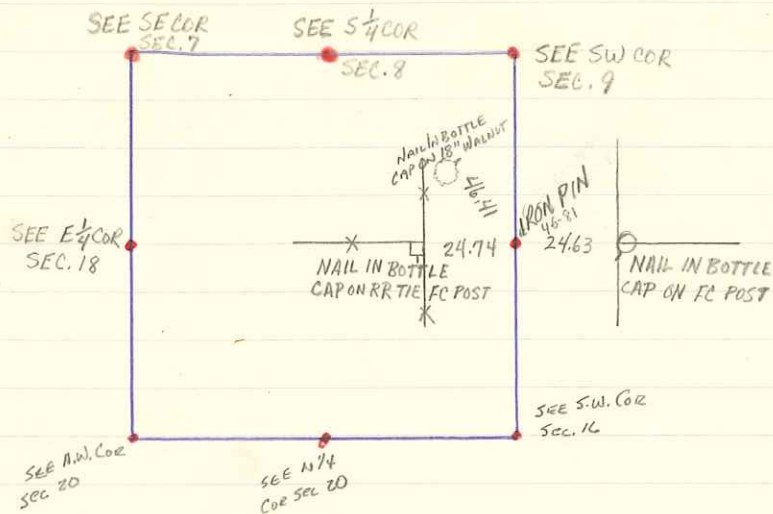 SEE SE COR
SEC. 7
SEE S 1/4 COR
SEC. 8
SEE SW COR
SEC. 9
NAIL IN BOTTLE
CAP ON 18" WALNUT
46.41
IRON PIN
46-81
SEE E 1/4 COR
SEC. 18
24.74
24.63
NAIL IN BOTTLE
CAP ON RR TIE FC POST
NAIL IN BOTTLE
CAP ON FC POST
SEE S.W. COR
SEC. 16
SEE N.W. COR
SEC 20
SEE N 1/4
COR SEC 20